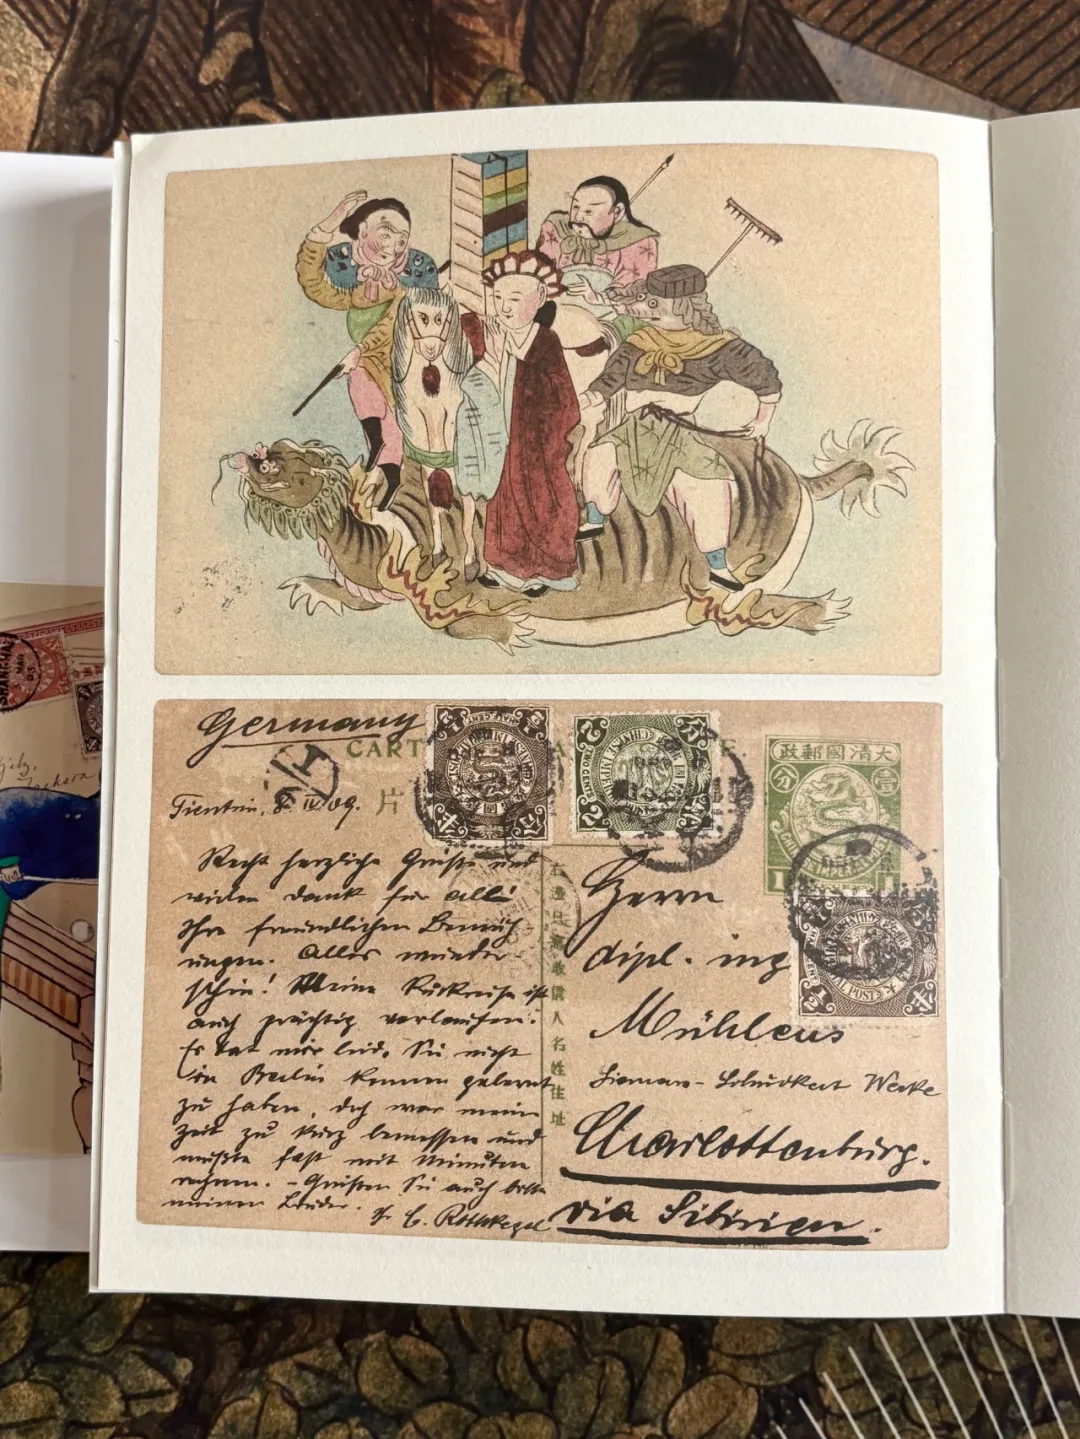 Germany
CART
E.
片
大清國郵政
壹
分
CHINESE IMPERIAL POST
2
TWO CENTS
1
1
Tientsin, 8. IV 09.
Recht herzliche Grüße und
vielen Dank für alle
Ihre freundlichen Bemüh-
ungen. Alles wunder-
schön! Meine Rückreise ist
auch prächtig verlaufen.
Es tat mir leid, Sie nicht
in Berlin kennen gelernt
zu haben, doch war meine
Zeit zu kurz bemessen und
mußte fast mit Minuten
rechnen. – Grüßen Sie auch bitte
meinen Bruder.
C. Rothkegel
人名姓住址
Herrn
dipl. ing
Mühlens
Siemens-Schuckert Werke
Charlottenburg.
via Sibirien.